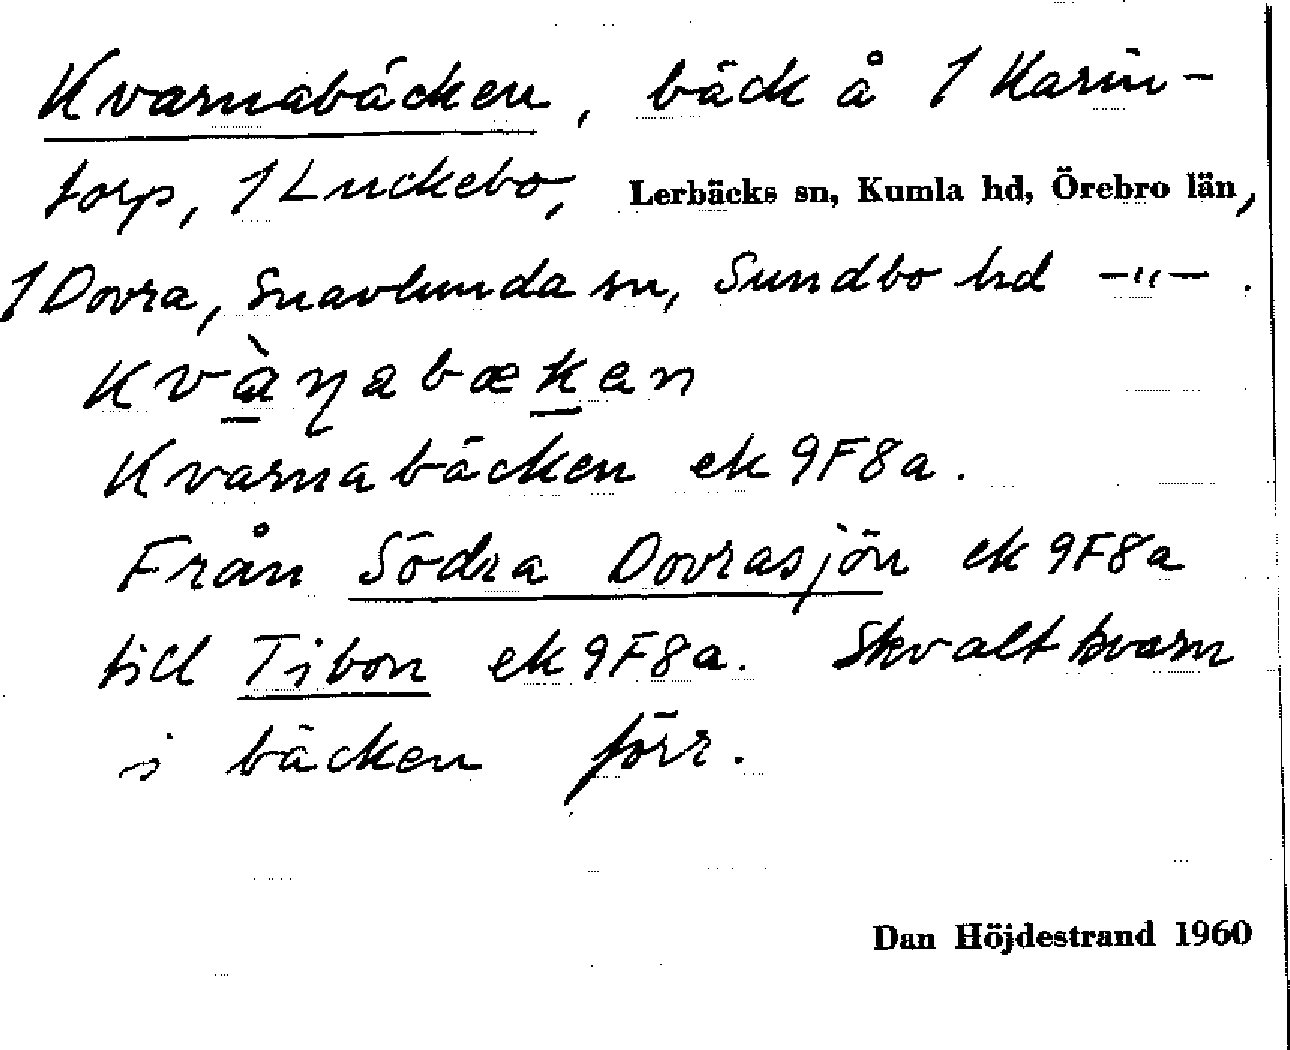 Kvarnabäcken, bäck å 1 Karin-
torp, 1 Luckebo, Lerbäcks sn, Kumla hd, Örebro län,
1 Dovra, Snavlunda sn, Sundbo hd –"– .
kvàŋabækan
Kvarnabäcken ek 9F8a.
Från Södra Dovrasjön ek 9F8a
till Tibon ek 9F8a. Skvaltkvarn
i bäcken förr.
Dan Höjdestrand 1960